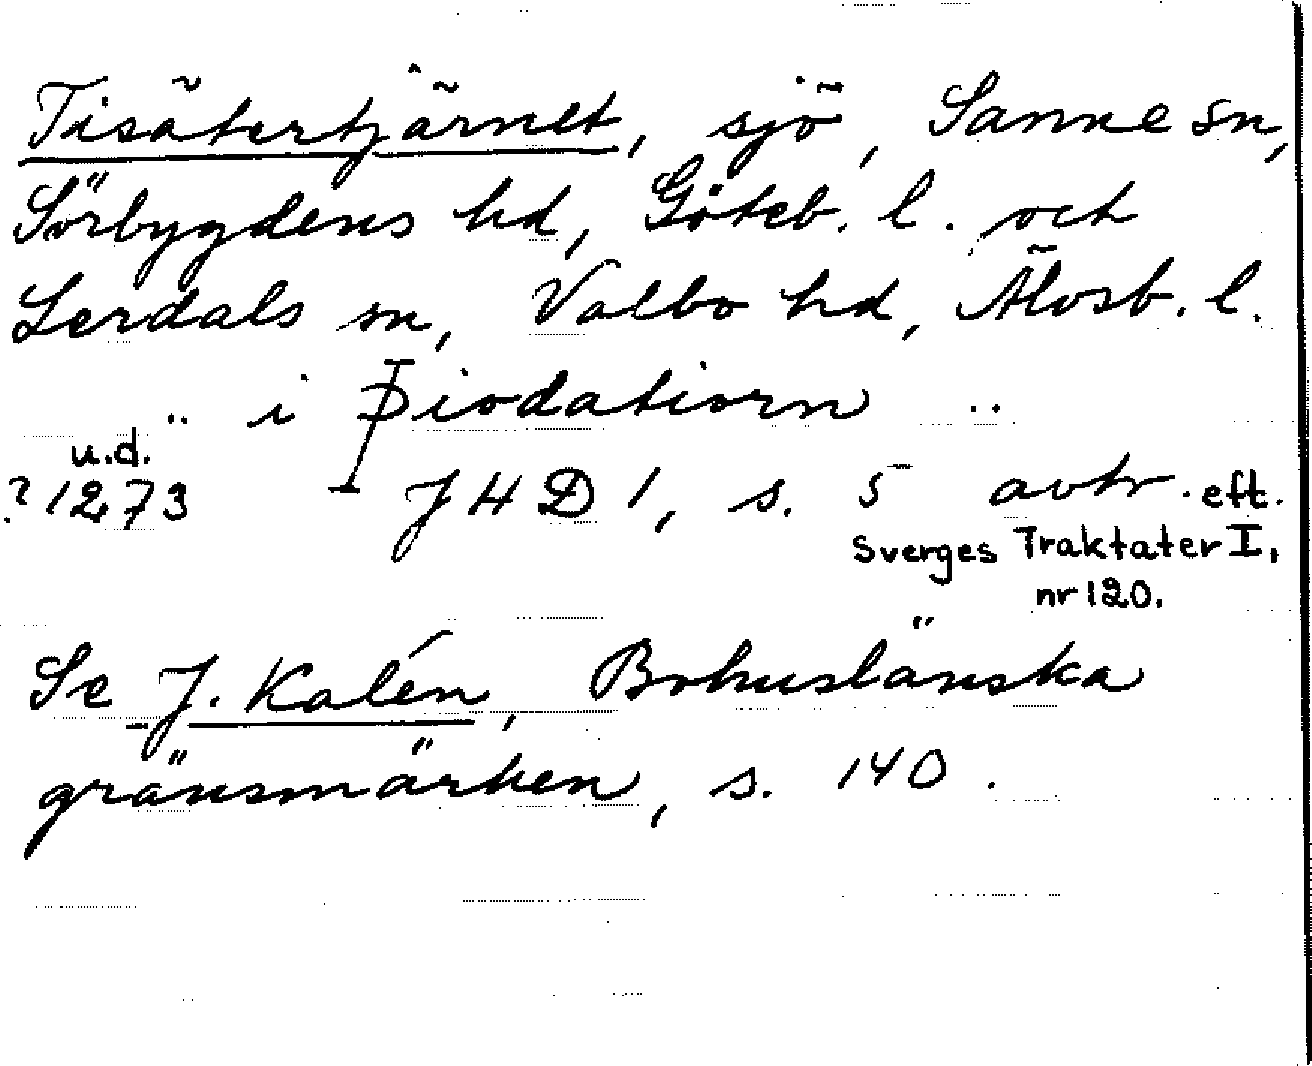 Tisätertjärnet, sjö, Sanne sn,
Sörbygdens hd, Göteb. l. och
Lerdals sn, Valbo hd, Älvsb. l.
.. i Þiodatiorn ..
u.d.
? 1273 JHD 1, s. 5 avtr. eft.
Sverges Traktater I,
nr 120.
Se J. Kalén, Bohuslänska
gränsmärken, s. 140.